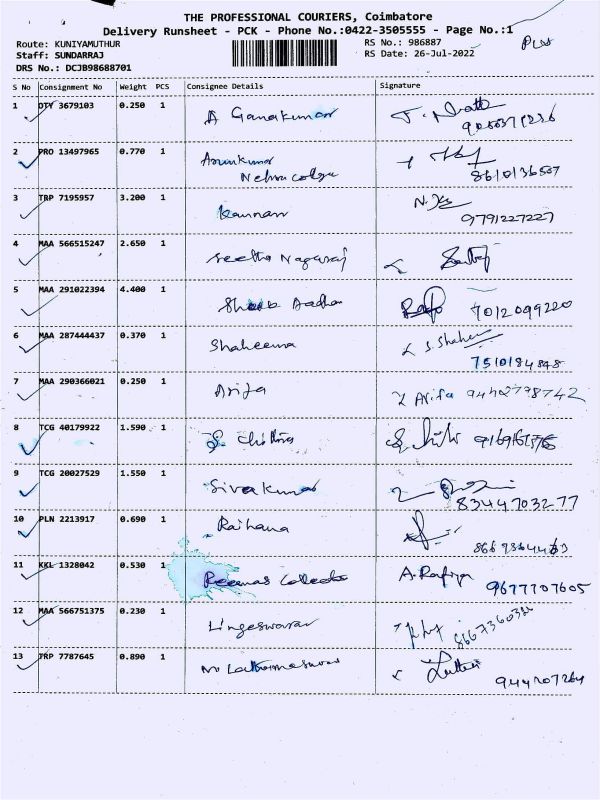 THE PROFESSIONAL COURIERS, Coimbatore
Delivery Runsheet - PCK - Phone No.:0422-3505555 - Page No.:1
Route: KUNIYAMUTHUR RS No.: 986887
Staff: SUNDARRAJ RS Date: 26-Jul-2022
DRS No.: DCJB98688701
S No Consignment No Weight PCS Consignee Details Signature
1 DTY 3679103 0.250 1 A Ganakumar
2 PRO 13497965 0.770 1 Arunkumar
Nehru College 8610136507
3 TRP 7195957 3.200 1 Kannan
9791227227
4 MAA 566515247 2.650 1 Seetha Nagaraj
5 MAA 291022394 4.400 1 7012099220
6 MAA 287444437 0.370 1 Shaheema S. Shaheema
7510184848
7 MAA 290366021 0.250 1 Arifa Arifa 9442798742
8 TCG 40179922 1.590 1 S. Chithra
9 TCG 20027529 1.550 1 Sivakumar
8344703277
10 PLN 2213917 0.690 1 Raihana
11 KKL 1328042 0.530 1 A. Rafiya 9677707605
12 MAA 566751375 0.230 1 Lingeswaran
13 TRP 7787645 0.890 1